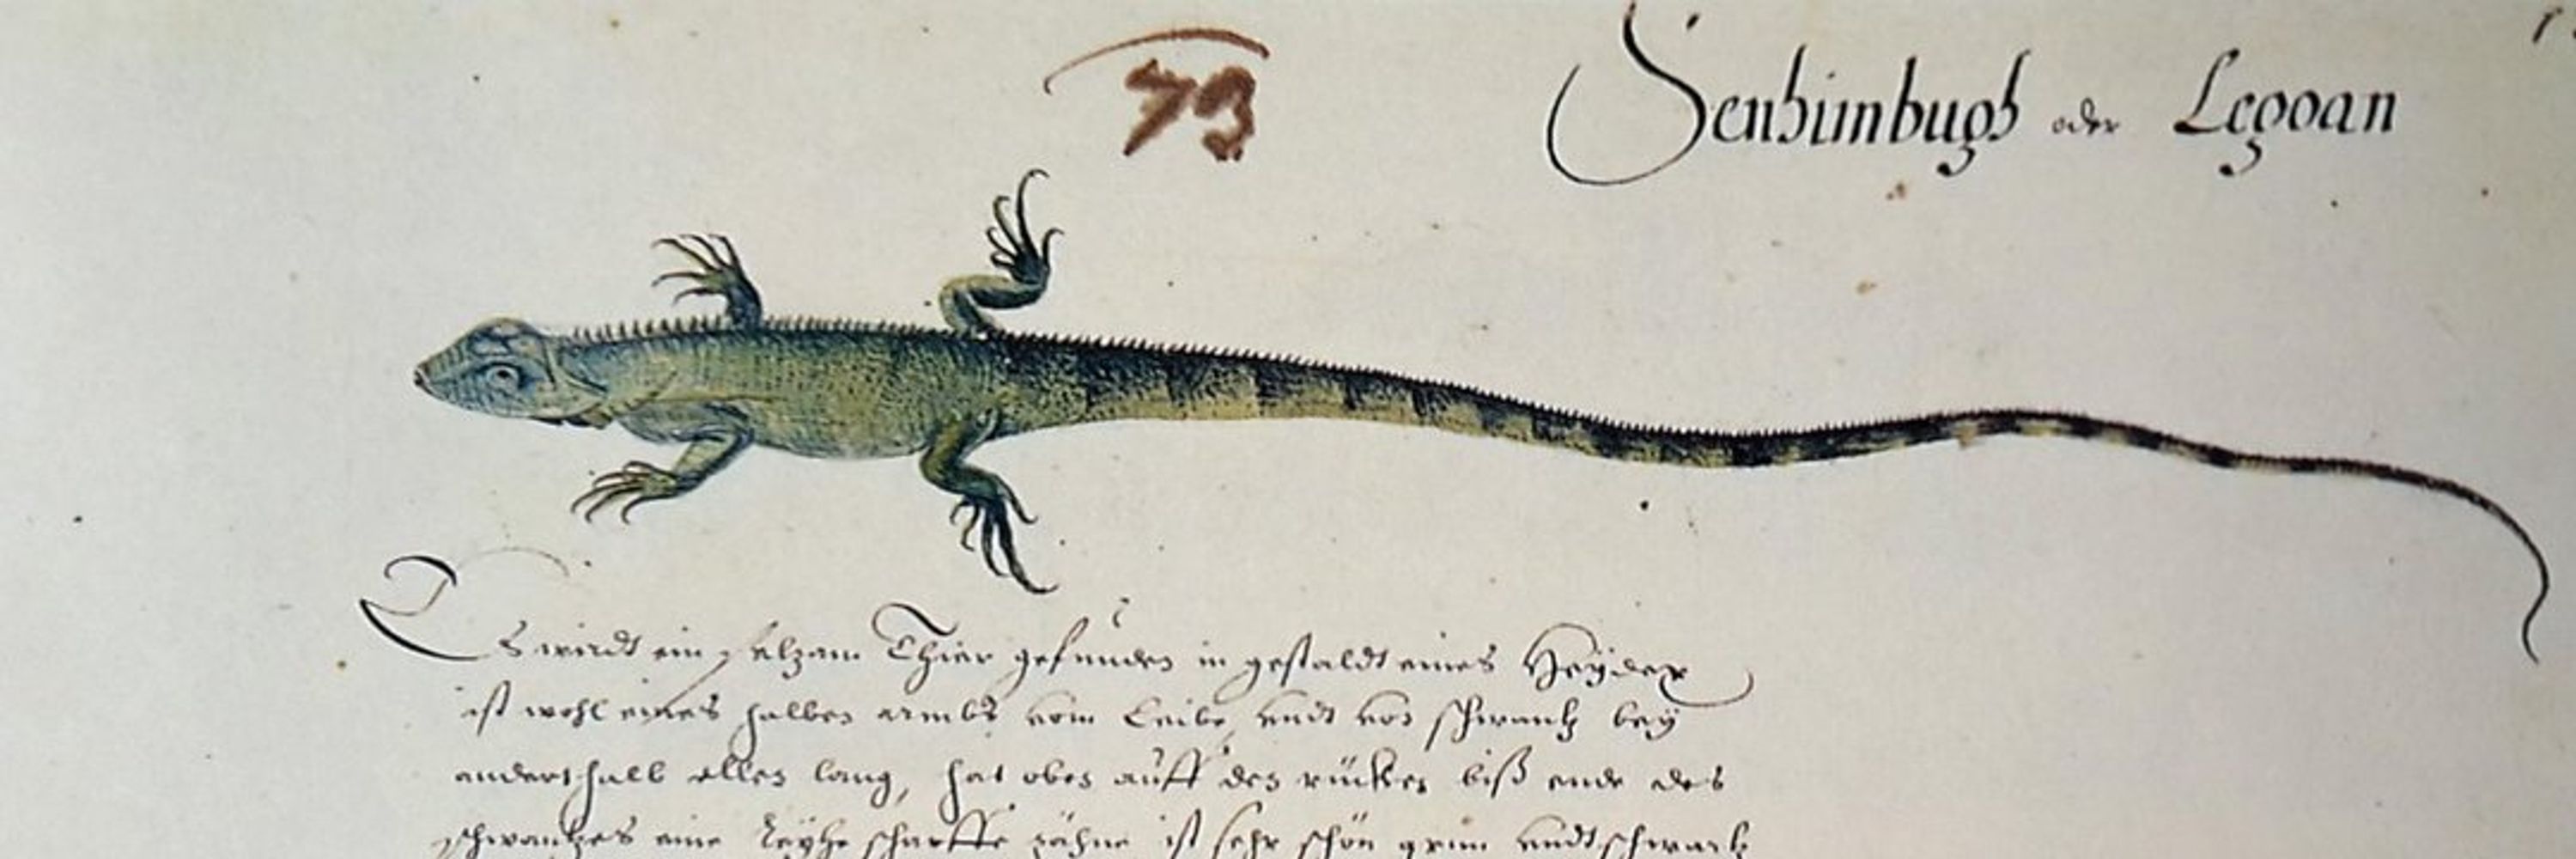 73
Senhimbugh oder Legoan
Es wirdt ein selzam Thier gefunden in gestaldt eines Heÿdex
ist wohl eines halben armbs vom Leibe, undt von schwantz beÿ
anderthalb ellen lang, hat oben auff den rücken biß ende des
schwantzes eine Reÿhe scharffe zähne ist sehr schön grün undt schwartz